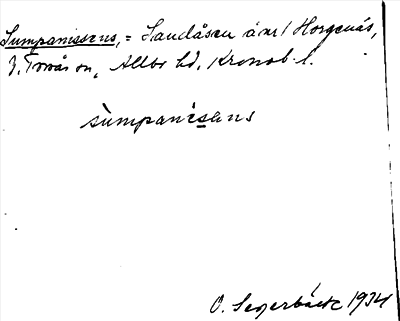 Sumpamossens, = Sandåsen å nr 1 Horgenäs,
V. Torsås sn, Allbo hd, Kronob. l.
sùmpamósens
O. Segerbäck 1934